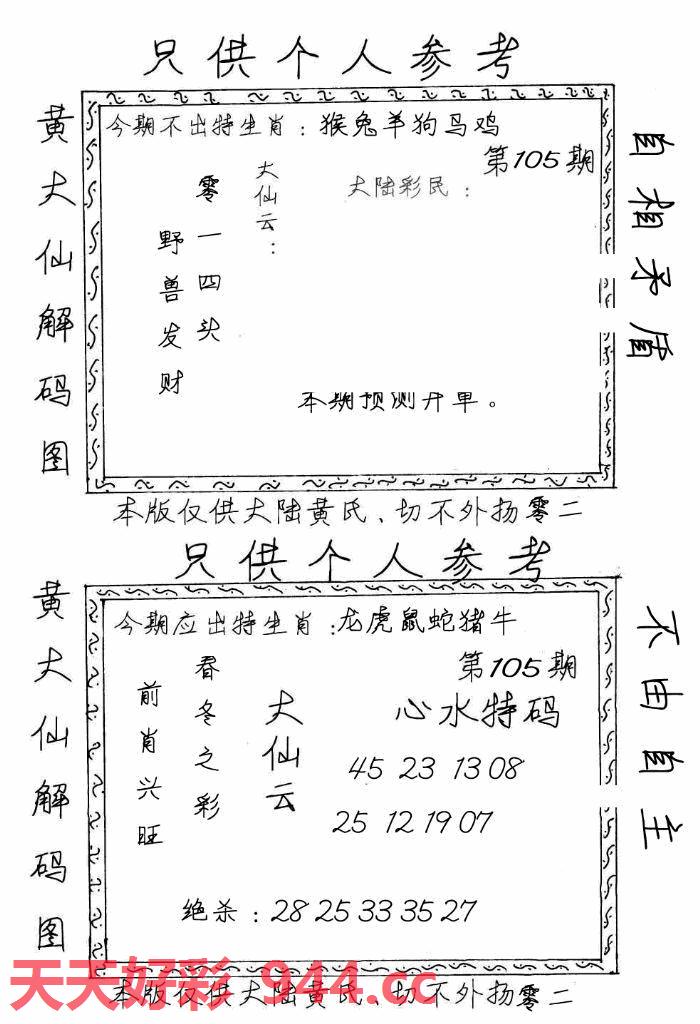 只供个人参考
黄大仙解码图
今期不出特生肖：猴兔羊狗马鸡
第105期
大陆彩民：
大仙云：
零一四头
野兽发财
本期预测开单。
自相矛盾
本版仅供大陆黄氏、切不外扬零二
只供个人参考
黄大仙解码图
今期应出特生肖：龙虎鼠蛇猪牛
第105期
心水特码
45 23 13 08
25 12 19 07
大仙云
春冬之彩
前肖兴旺
绝杀：28 25 33 35 27
不由自主
天天好彩 944.cc
本版仅供大陆黄氏、切不外扬零二